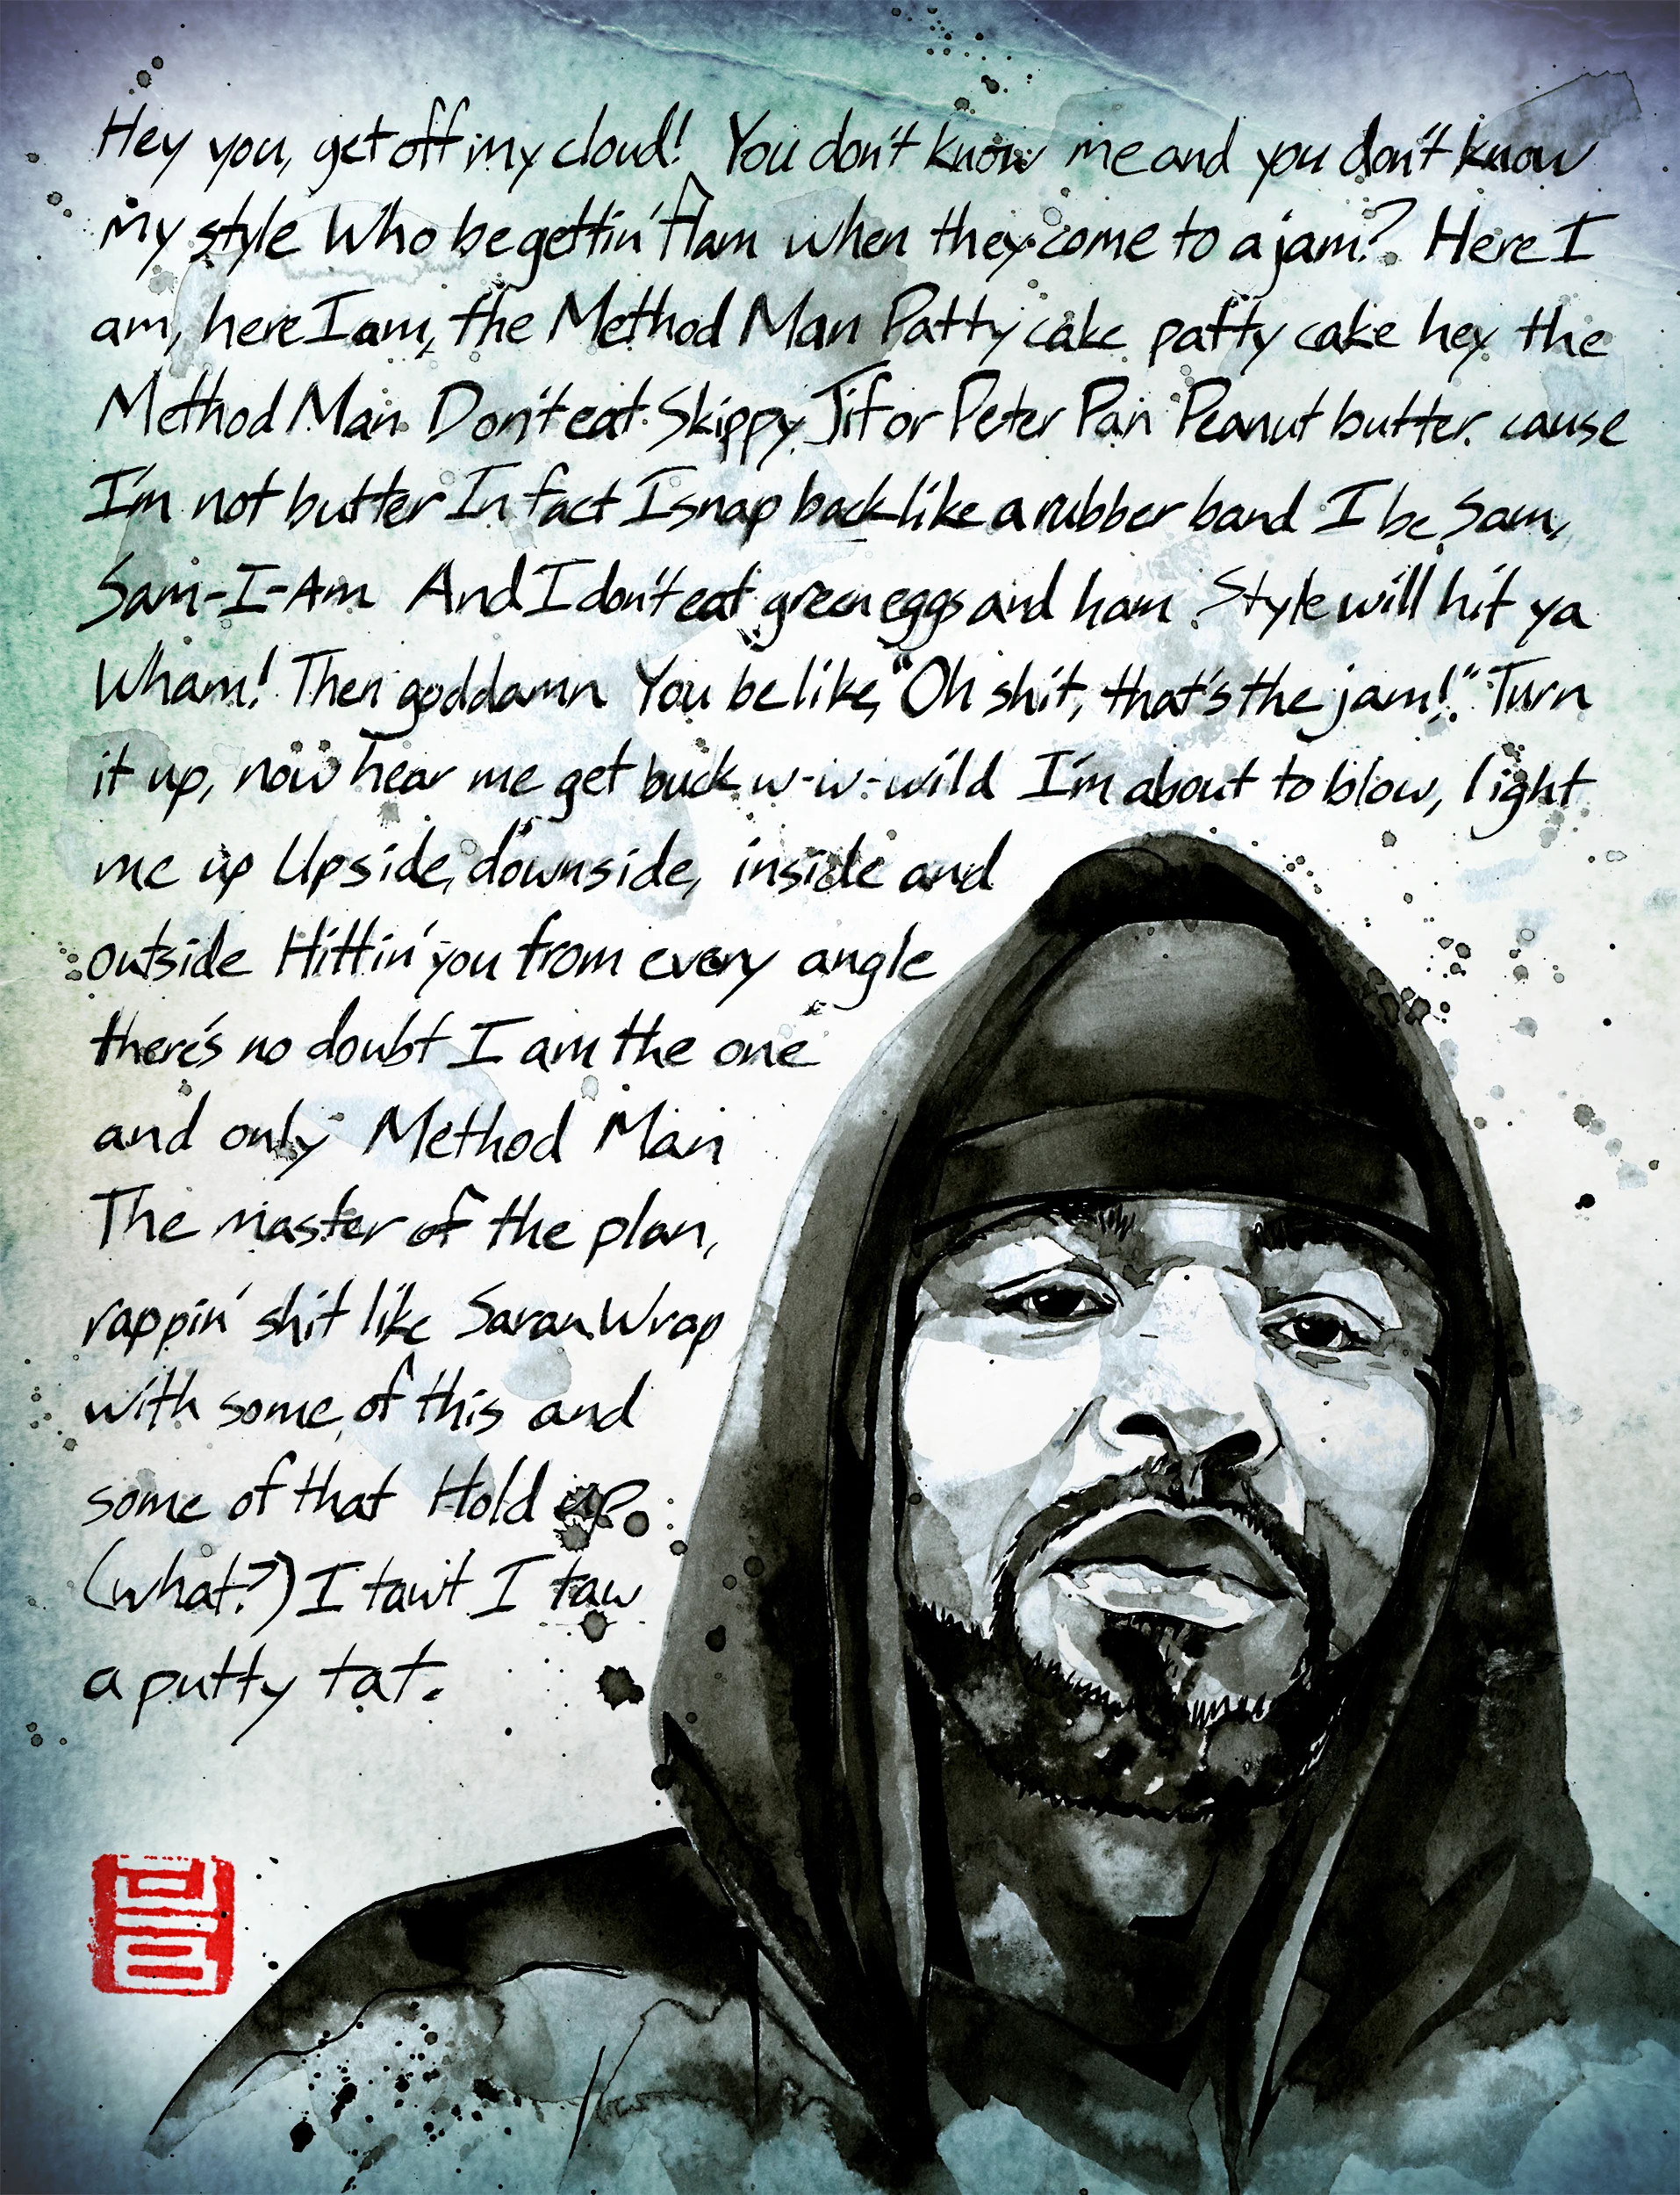 Hey you, get off my cloud! You don't know me and you don't know
my style Who be gettin' flam when they come to a jam? Here I
am, here I am, the Method Man Patty cake patty cake hey the
Method Man Don't eat Skippy, Jif or Peter Pan Peanut butter. cause
I'm not butter In fact I snap back like a rubber band I be Sam,
Sam-I-Am And I don't eat green eggs and ham Style will hit ya
Wham! Then goddamn You be like, "Oh shit, that's the jam!" Turn
it up, now hear me get buck w-w-wild I'm about to blow, light
me up Upside, downside, inside and
outside Hittin' you from every angle
there's no doubt I am the one
and only Method Man
The master of the plan,
rappin' shit like Saran Wrap
with some of this and
some of that Hold up.
(what?) I tawt I taw
a putty tat.